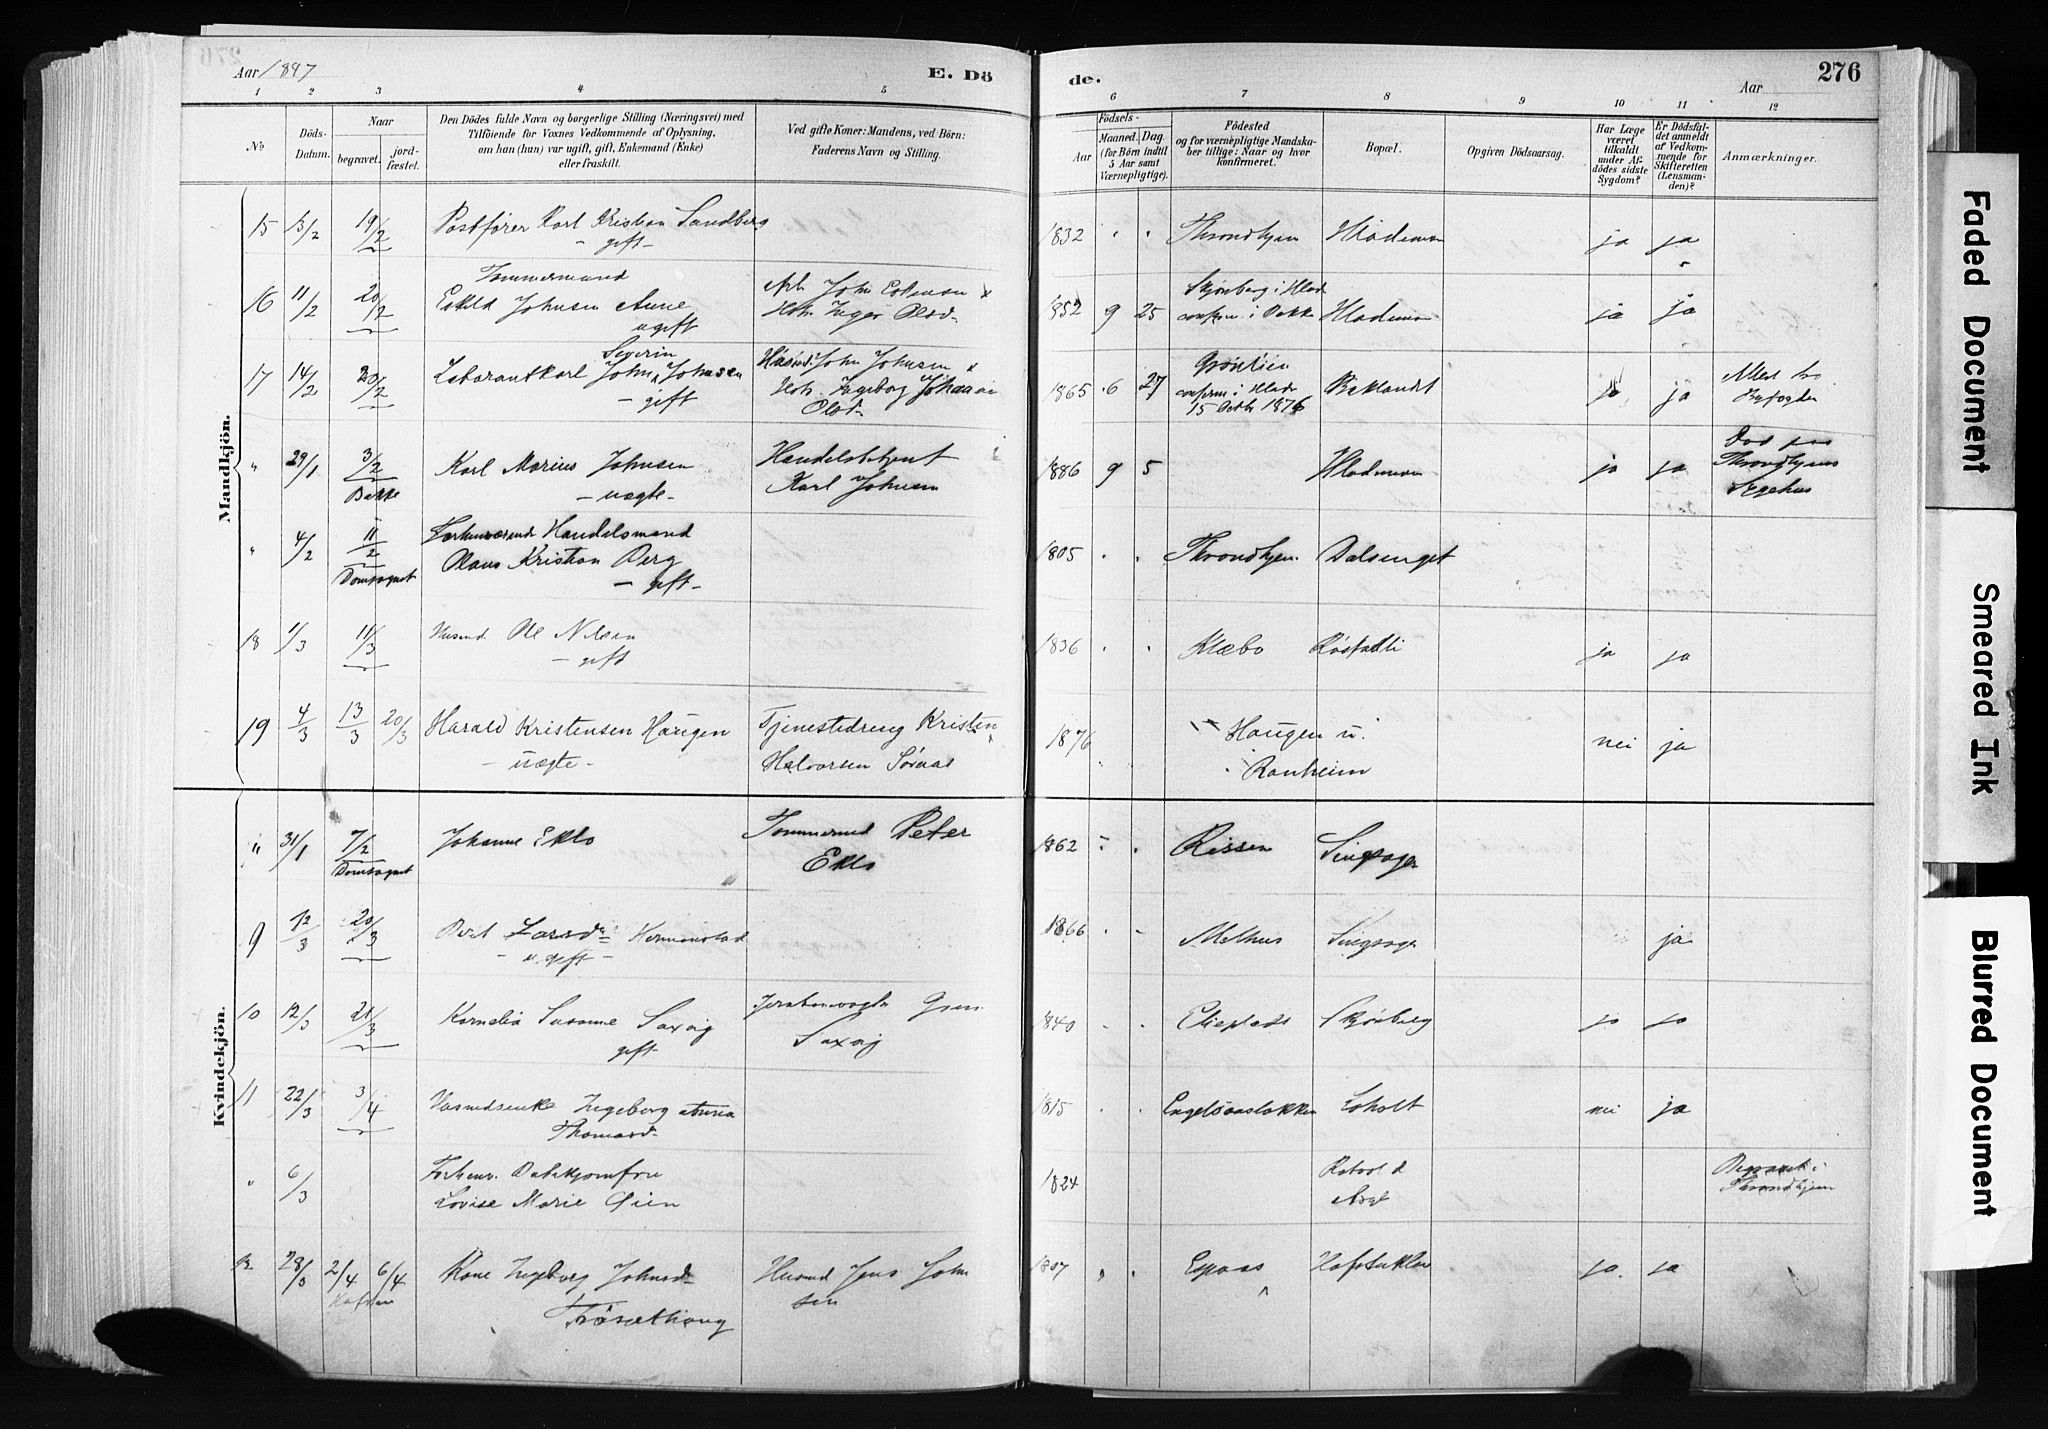 Aar 1897
E. Dö
de.
Aar
276
1 2 3 4 5 6 7 8 9 10 11 12
No
Döds-
Datum.
Naar
begravet.
jord-
fæstet.
Den Dödes fulde Navn og borgerlige Stilling (Næringsvei) med
Tilföiende for Voxnes Vedkommende af Oplysning,
om han (hun) var ugift, gift, Enkemand (Enke)
eller fraskilt.
Ved gifte Koner: Mandens, ved Börn:
Faderens Navn og Stilling.
Födsels-
Aar
Maaned.
Dag.
(for Börn indtil
5 Aar samt
Værnepligtige).
Födested
og for værnepligtige Mandska-
ber tillige: Naar og hvor
konfirmeret.
Bopæl.
Opgiven Dödsaarsag.
Har Læge
været
tilkaldt
under Af-
dödes sidste
Sygdom?
Er Dödsfal-
det anmeldt
af Vedkom-
mende for
Skifteretten
(Lensman-
den)?
Anmærkninger.
Mandkjön.
15 13/2 19/2 Postfører Karl Kristian Sandberg
- gift -
1832 Throndhjem Hlademoen ja ja
Tømmermand
16 11/2 20/2 Eskild Johnsen Aune
ugift
Arb. John
Inger Olsd.
1852 9 25
Skjønberg i Hlade
confirm. i Bakke Hlademoen ja ja
Severin
17 14/2 20/2 Laborantkarl John Johnsen
- gift -
Husmd. John Johnsen
Ingeborg Johanna
Olsd.
1865 6 27
Grønlien
confirm. i Hlade
15 Octbr 1876
Baklandt ja ja
Anm. for
Byfogden
" 29/1 3/2 Karl Marius Johnsen
Bakke - uægte -
Handelsbetjent
Karl Johnsen
1886 9 5 Hlademoen ja ja
Død paa
Throndhjems
Sygehus
" 4/2 11/2 Forhenværende Handelsmand
Domsognet Claus Kristian Berg
- gift -
1805 Throndhjem Dalsenget
18 1/3 11/3 Husmd. Ole Nilsen
- gift -
1836 Klæbo Rostadli ja ja
19 4/3 13/3 20/3 Harald Kristensen Haugen
- uægte -
Tjenestedreng Kristen
Halvorsen Søraas
1876 Haugen u.
Ranheim nei ja
Kvindekjön.
" 31/1 7/2 Johanne Eklo
Domsognet
Tømmermd Peter
Eklo
1862 Rissen Singsager
9 12/3 20/3 Berit Larsd. Hermanstad
- ugift -
1866 Melhus Singsager ja
10 12/3 21/3 Kornelia Susanne Saxvig
gift
Jernbanevogter
Saxvig
1840 Elieplads Skjønberg ja ja
11 22/3 3/4 Husmdsenke Ingeborg Anna
Thomasd.
1815 Engelsaasløkken Loholt nei ja
" 6/3 Forhenv.
Lovise Marie Øien
1824 Rotvold
Asyl
Begravet i
Throndhjem
12 28/3 2/4 6/4 Kone Ingeborg Johnsd.
Trøsethaug
Husmd Jens John
sen
1807 Espaas ja ja
Faded Document
Smeared Ink
Blurred Document